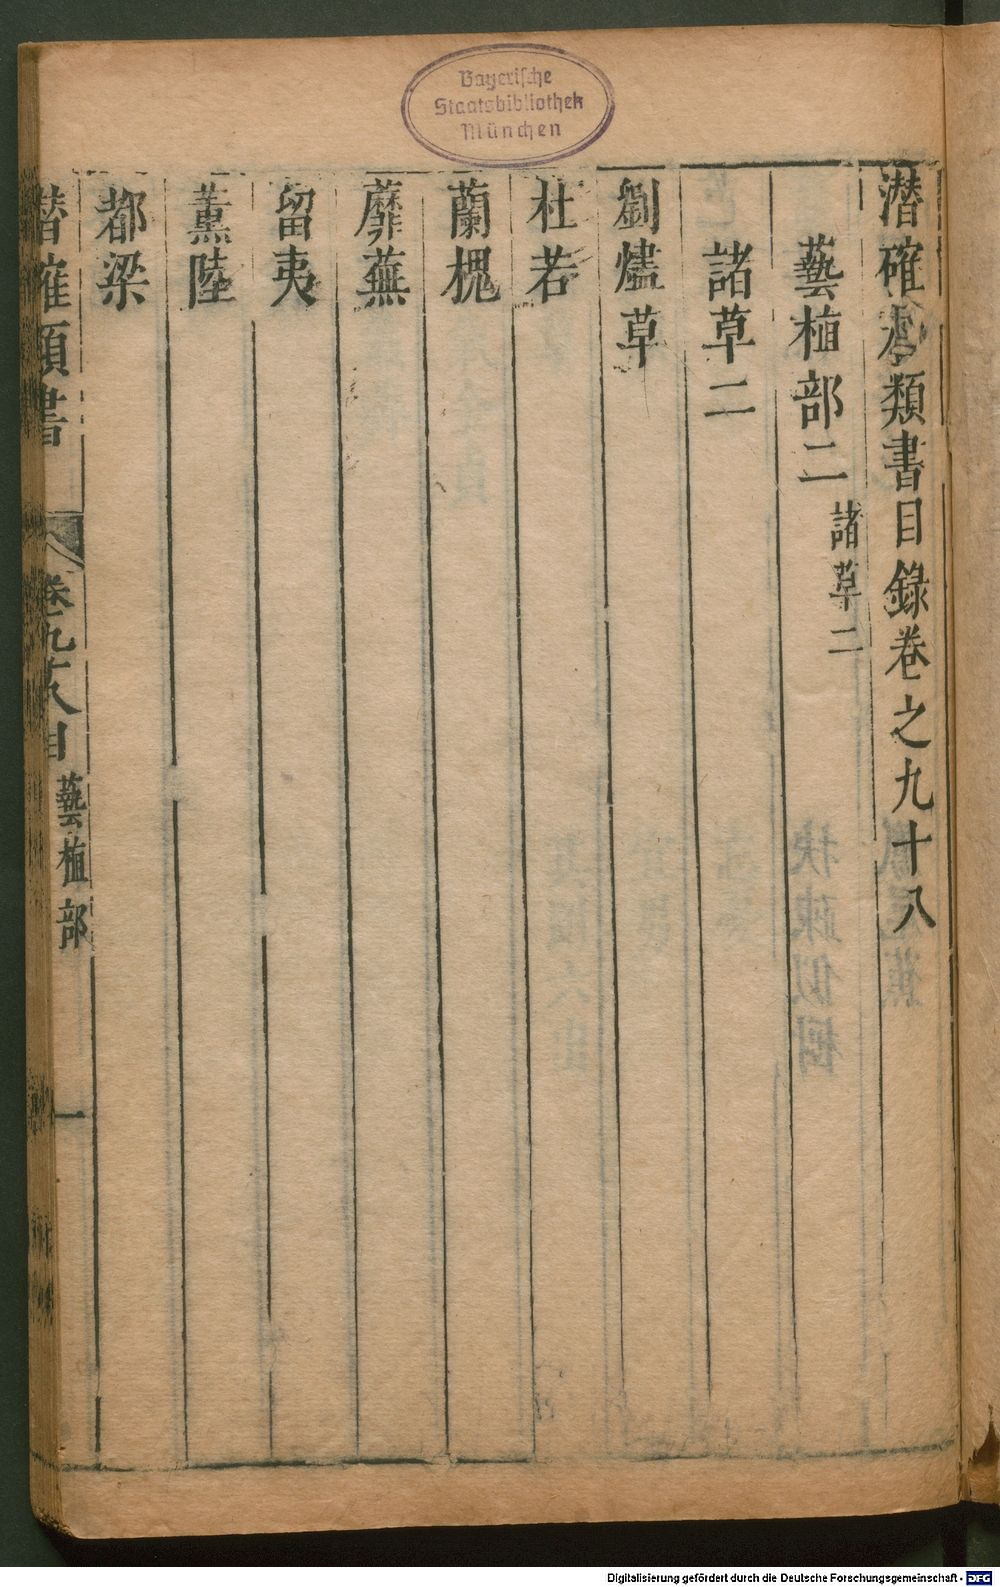 Bayerische
Staatsbibliothek
München
潛確居類書目錄卷之九十八
藝植部二 諸草二
諸草二
劉燼草
杜若
蘭槐
蘼蕪
留夷
薰陸
都梁
潛確類書 卷九十八目 藝植部 一
Digitalisierung gefördert durch die Deutsche Forschungsgemeinschaft - DFG